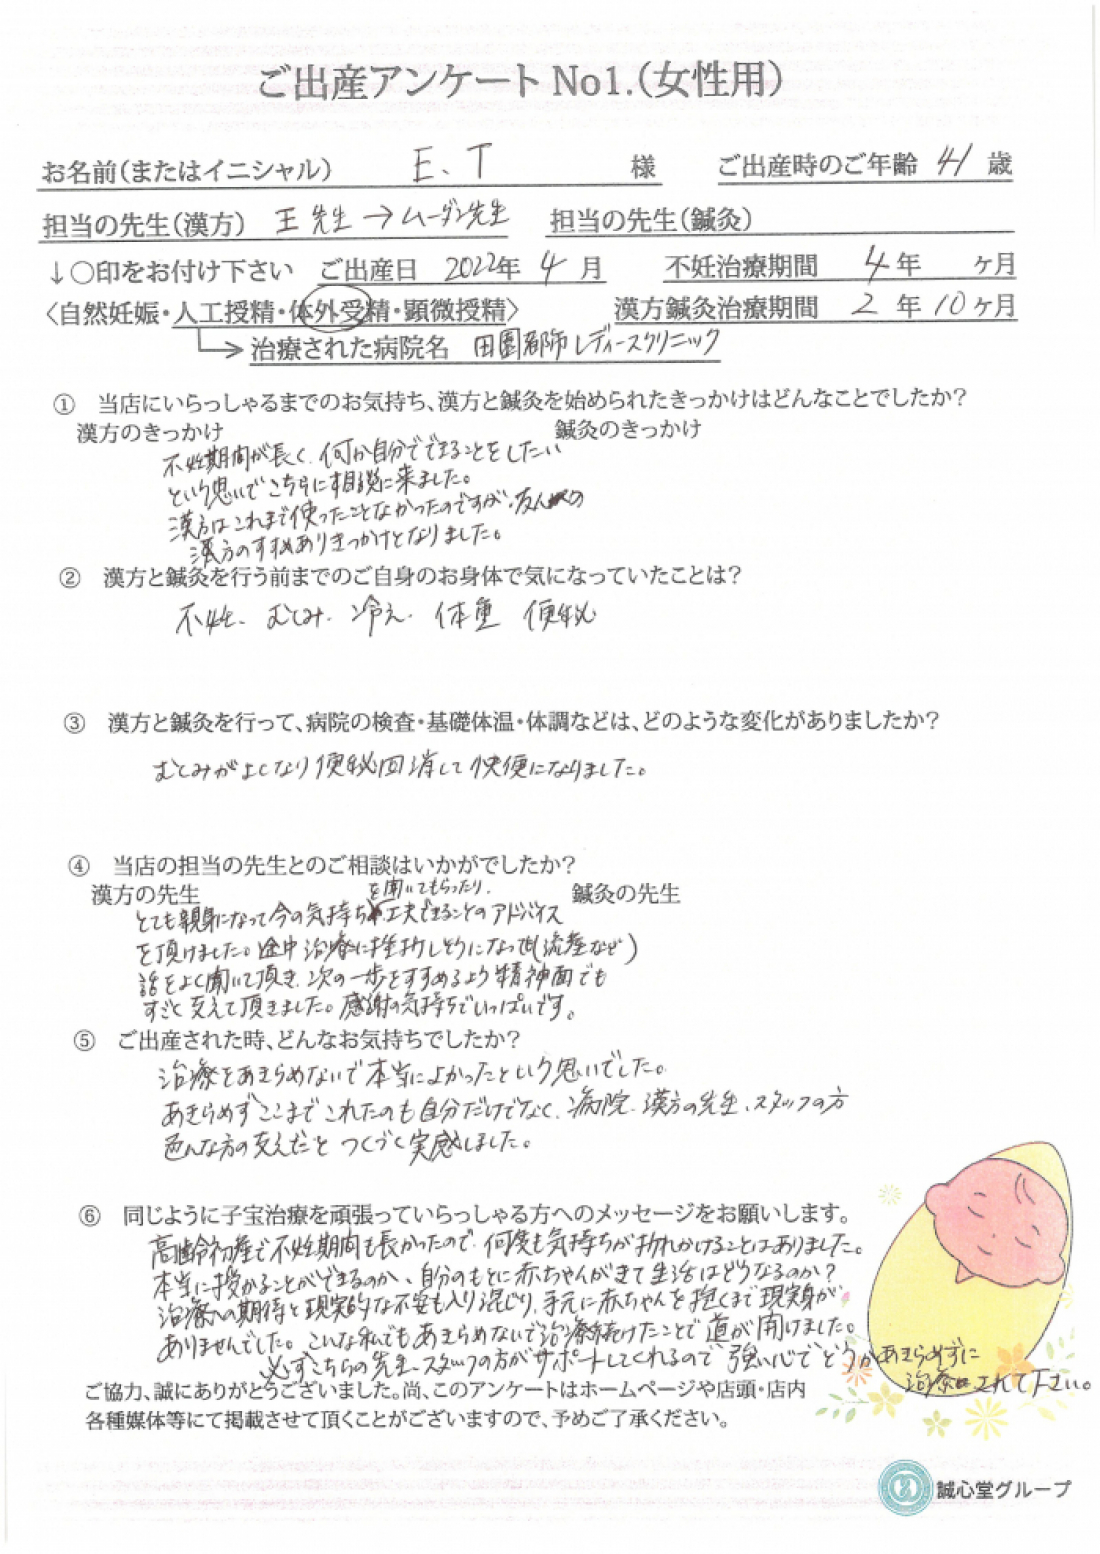 ご出産アンケートNo1.(女性用)
お名前(またはイニシャル) E.T 様 ご出産時のご年齢 41 歳
担当の先生(漢方) 王先生→ムーダン先生 担当の先生(鍼灸)
↓○印をお付け下さい ご出産日 2022年 4 月 不妊治療期間 4 年 ヶ月
〈自然妊娠・人工授精・体外受精・顕微授精〉 漢方鍼灸治療期間 2 年 10 ヶ月
治療された病院名 田園都市レディースクリニック
① 当店にいらっしゃるまでのお気持ち、漢方と鍼灸を始められたきっかけはどんなことでしたか?
漢方のきっかけ 鍼灸のきっかけ
不妊期間が長く、何か自分でできることをしたい
という思いでこちらに相談に来ました。
漢方はこれまで使ったことなかったのですが、友人の
漢方のすすめありきっかけとなりました。
② 漢方と鍼灸を行う前までのご自身のお身体で気になっていたことは?
不妊、むくみ、冷え、体重 便秘
③ 漢方と鍼灸を行って、病院の検査・基礎体温・体調などは、どのような変化がありましたか?
むくみがよくなり便秘回消して快便になりました。
④ 当店の担当の先生とのご相談はいかがでしたか?
漢方の先生 鍼灸の先生
とても親身になって今の気持ちを聞いてもらったり、工夫できることのアドバイス
を頂けました。途中治療に挫折しそうになっても(流産など)
話をよく聞いて頂き、次の一歩をすすめるよう精神面でも
すごく支えて頂きました。感謝の気持ちでいっぱいです。
⑤ ご出産された時、どんなお気持ちでしたか?
治療をあきらめないで本当によかったという思いでした。
あきらめずここまでこれたのも自分だけでなく、病院、漢方の先生、スタッフの方
色んな方の支えだとつくづく実感しました。
⑥ 同じように子宝治療を頑張っていらっしゃる方へのメッセージをお願いします。
高齢初産で不妊期間も長かったので、何度も気持ちが折れかけることはありました。
本当に授かることができるのか、自分のもとに赤ちゃんがきて生活はどうなるのか?
治療への期待と現実的な不安も入り混じり、手元に赤ちゃんを抱くまで現実身が
ありませんでした。こんな私でもあきらめないで治療続けたことで道が開けました。
必ずこちらの先生、スタッフの方がサポートしてくれるので強い心でどうかあきらめずに
治療されて下さい。
ご協力、誠にありがとうございました。尚、このアンケートはホームページや店頭・店内
各種媒体等にて掲載させて頂くことがございますので、予めご了承ください。
誠心堂グループ